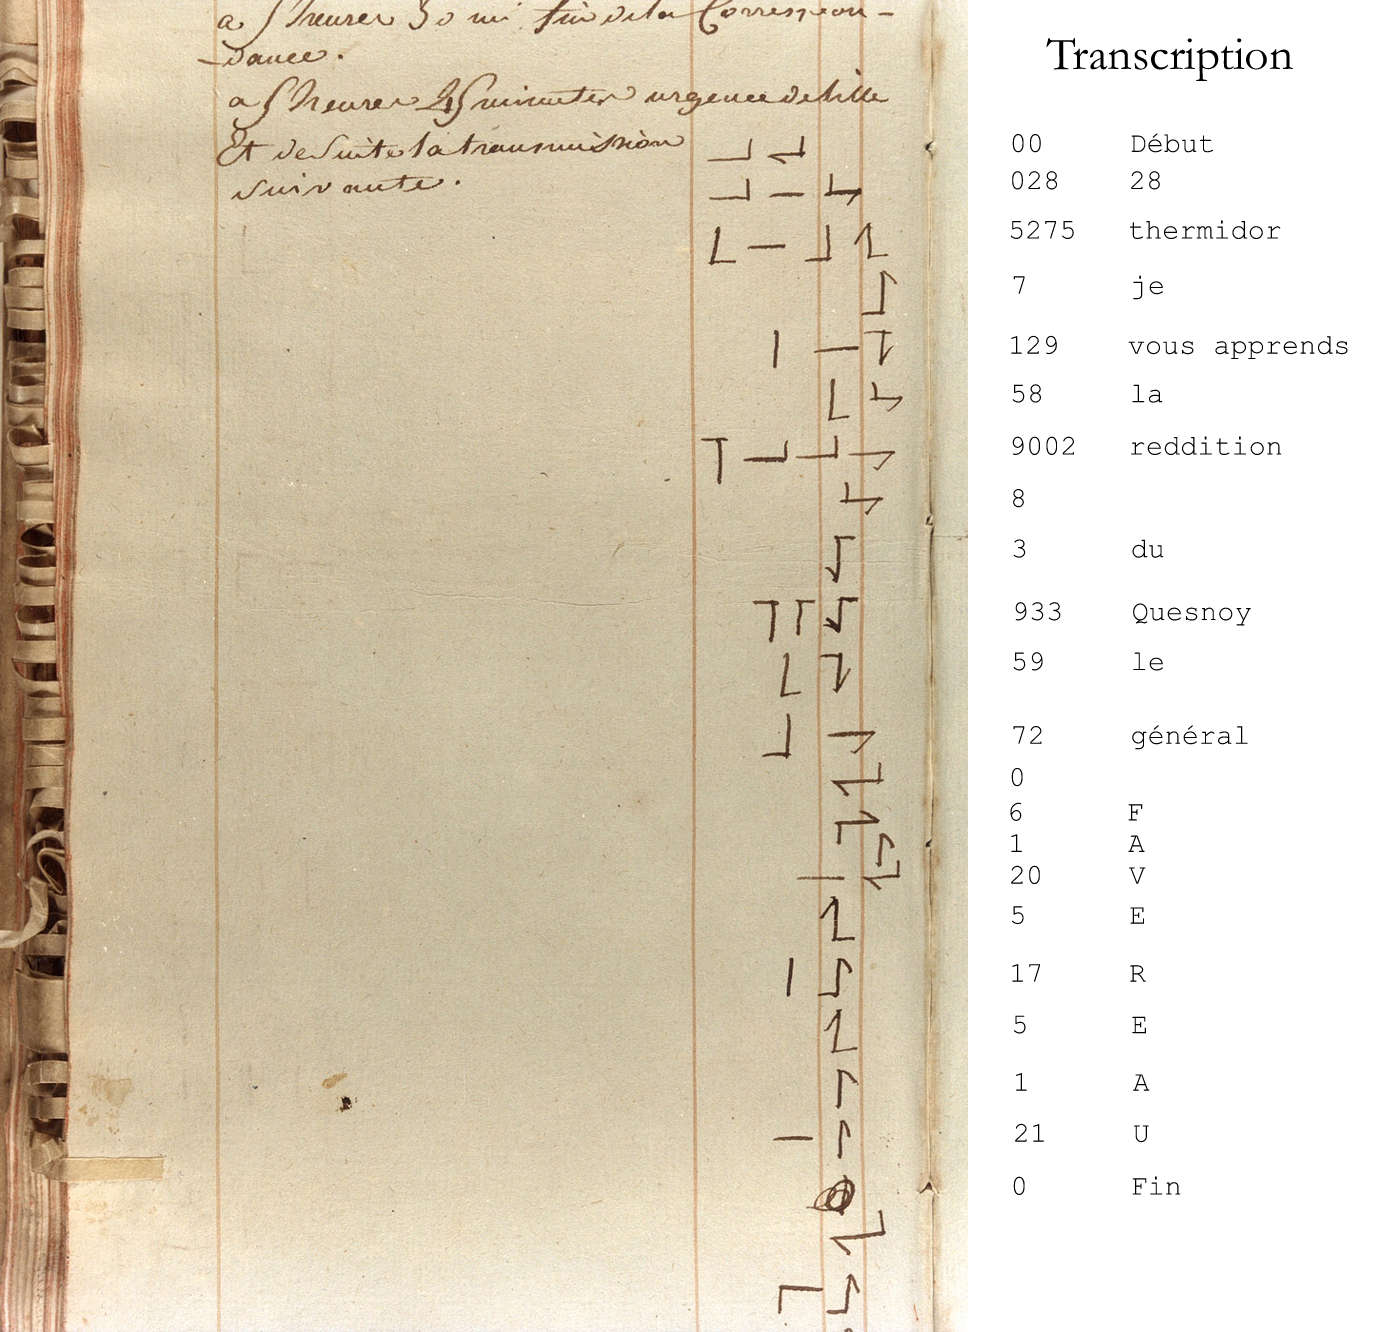 a 5 heures 30 mi fin de la Correspon-
-dance.
a 5 heures 45 minutes urgence de lille
Et de suite la transmission
suivante.
Transcription
00 Début
028 28
5275 thermidor
7 je
129 vous apprends
58 la
9002 reddition
8
3 du
933 Quesnoy
59 le
72 général
0
6 F
1 A
20 V
5 E
17 R
5 E
1 A
21 U
0 Fin